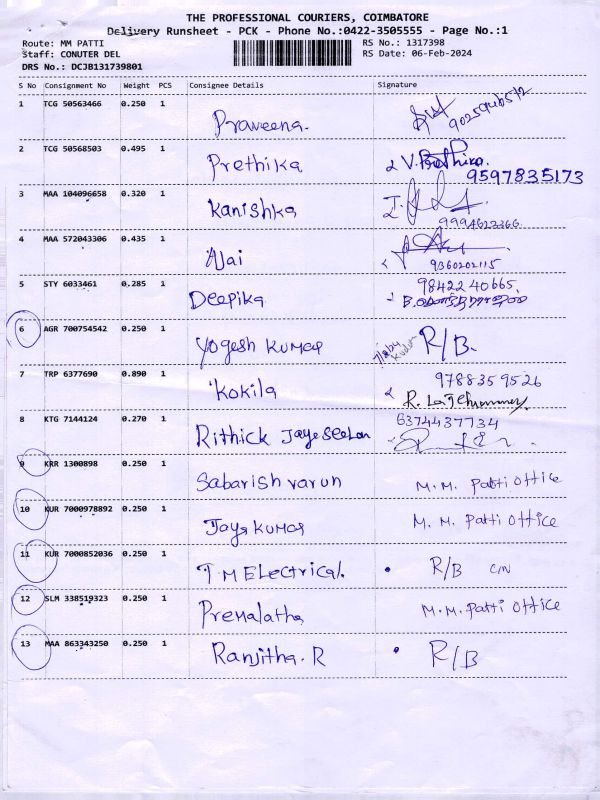 THE PROFESSIONAL COURIERS, COIMBATORE
Delivery Runsheet - PCK - Phone No.:0422-3505555 - Page No.:1
Route: MM PATTI RS No.: 1317398
Staff: CONUTER DEL RS Date: 06-Feb-2024
DRS No.: DCJB131739801
S No Consignment No Weight PCS Consignee Details Signature
1 TCG 50563466 0.250 1 Praveena.
2 TCG 50568503 0.495 1 Prethika V. Prethika.
9597835173
3 MAA 104096658 0.320 1 Kanishka
9994622366
4 MAA 572043306 0.435 1 Ajai
9360202115
5 STY 6033461 0.285 1 Deepika 98422 40665
6 AGR 700754542 0.250 1 Yogesh Kumar R/B.
7 TRP 6377690 0.890 1 Kokila 9788359526
8 KTG 7144124 0.270 1 Rithick Jayeseelan 6374437734
9 KRR 1300898 0.250 1 Sabarish varun M.M. Patti office
10 KUR 7000978892 0.250 1 Jaya Kumar M. M. Patti office
11 KUR 7000852036 0.250 1 T M Electrical. R/B C/N
12 SLM 338519323 0.250 1 Premalatha M.M. Patti office
13 MAA 863343250 0.250 1 Ranjitha. R R/B